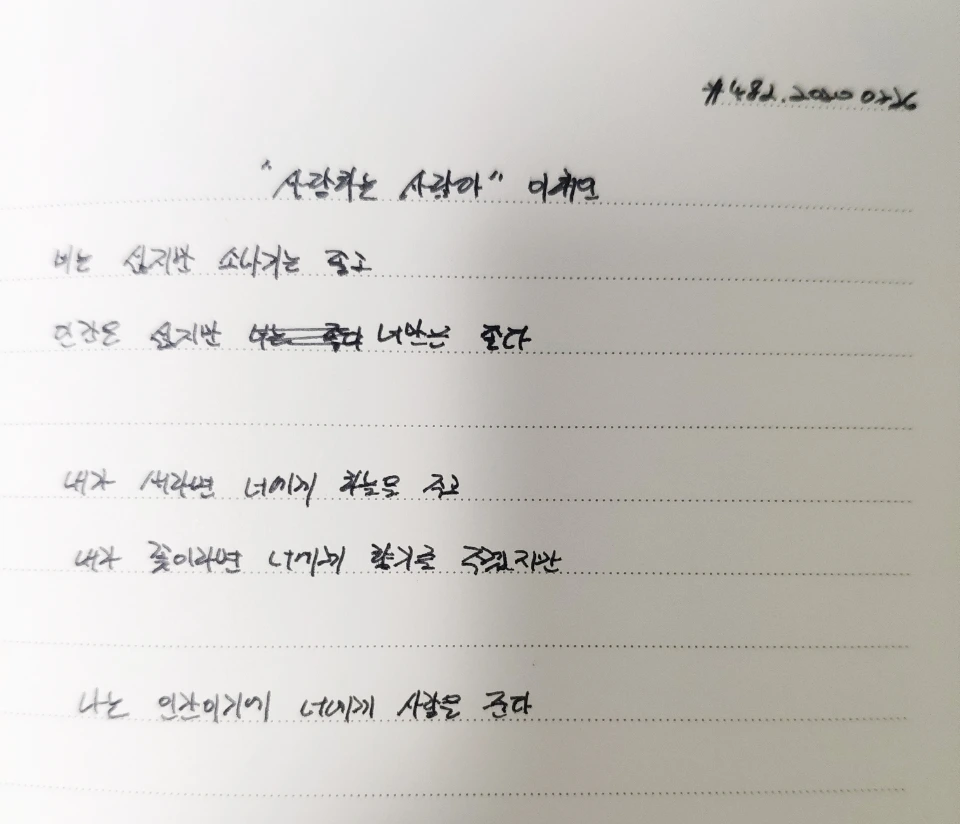 #482. 2020 0226
"사랑하는 사람아" 이채연
비는 싫지만 소나기는 좋고
인간은 싫지만 너는 좋다 너만은 좋다
내가 새라면 너에게 하늘을 주고
내가 꽃이라면 너에게 향기를 주겠지만
나는 인간이기에 너에게 사랑을 준다